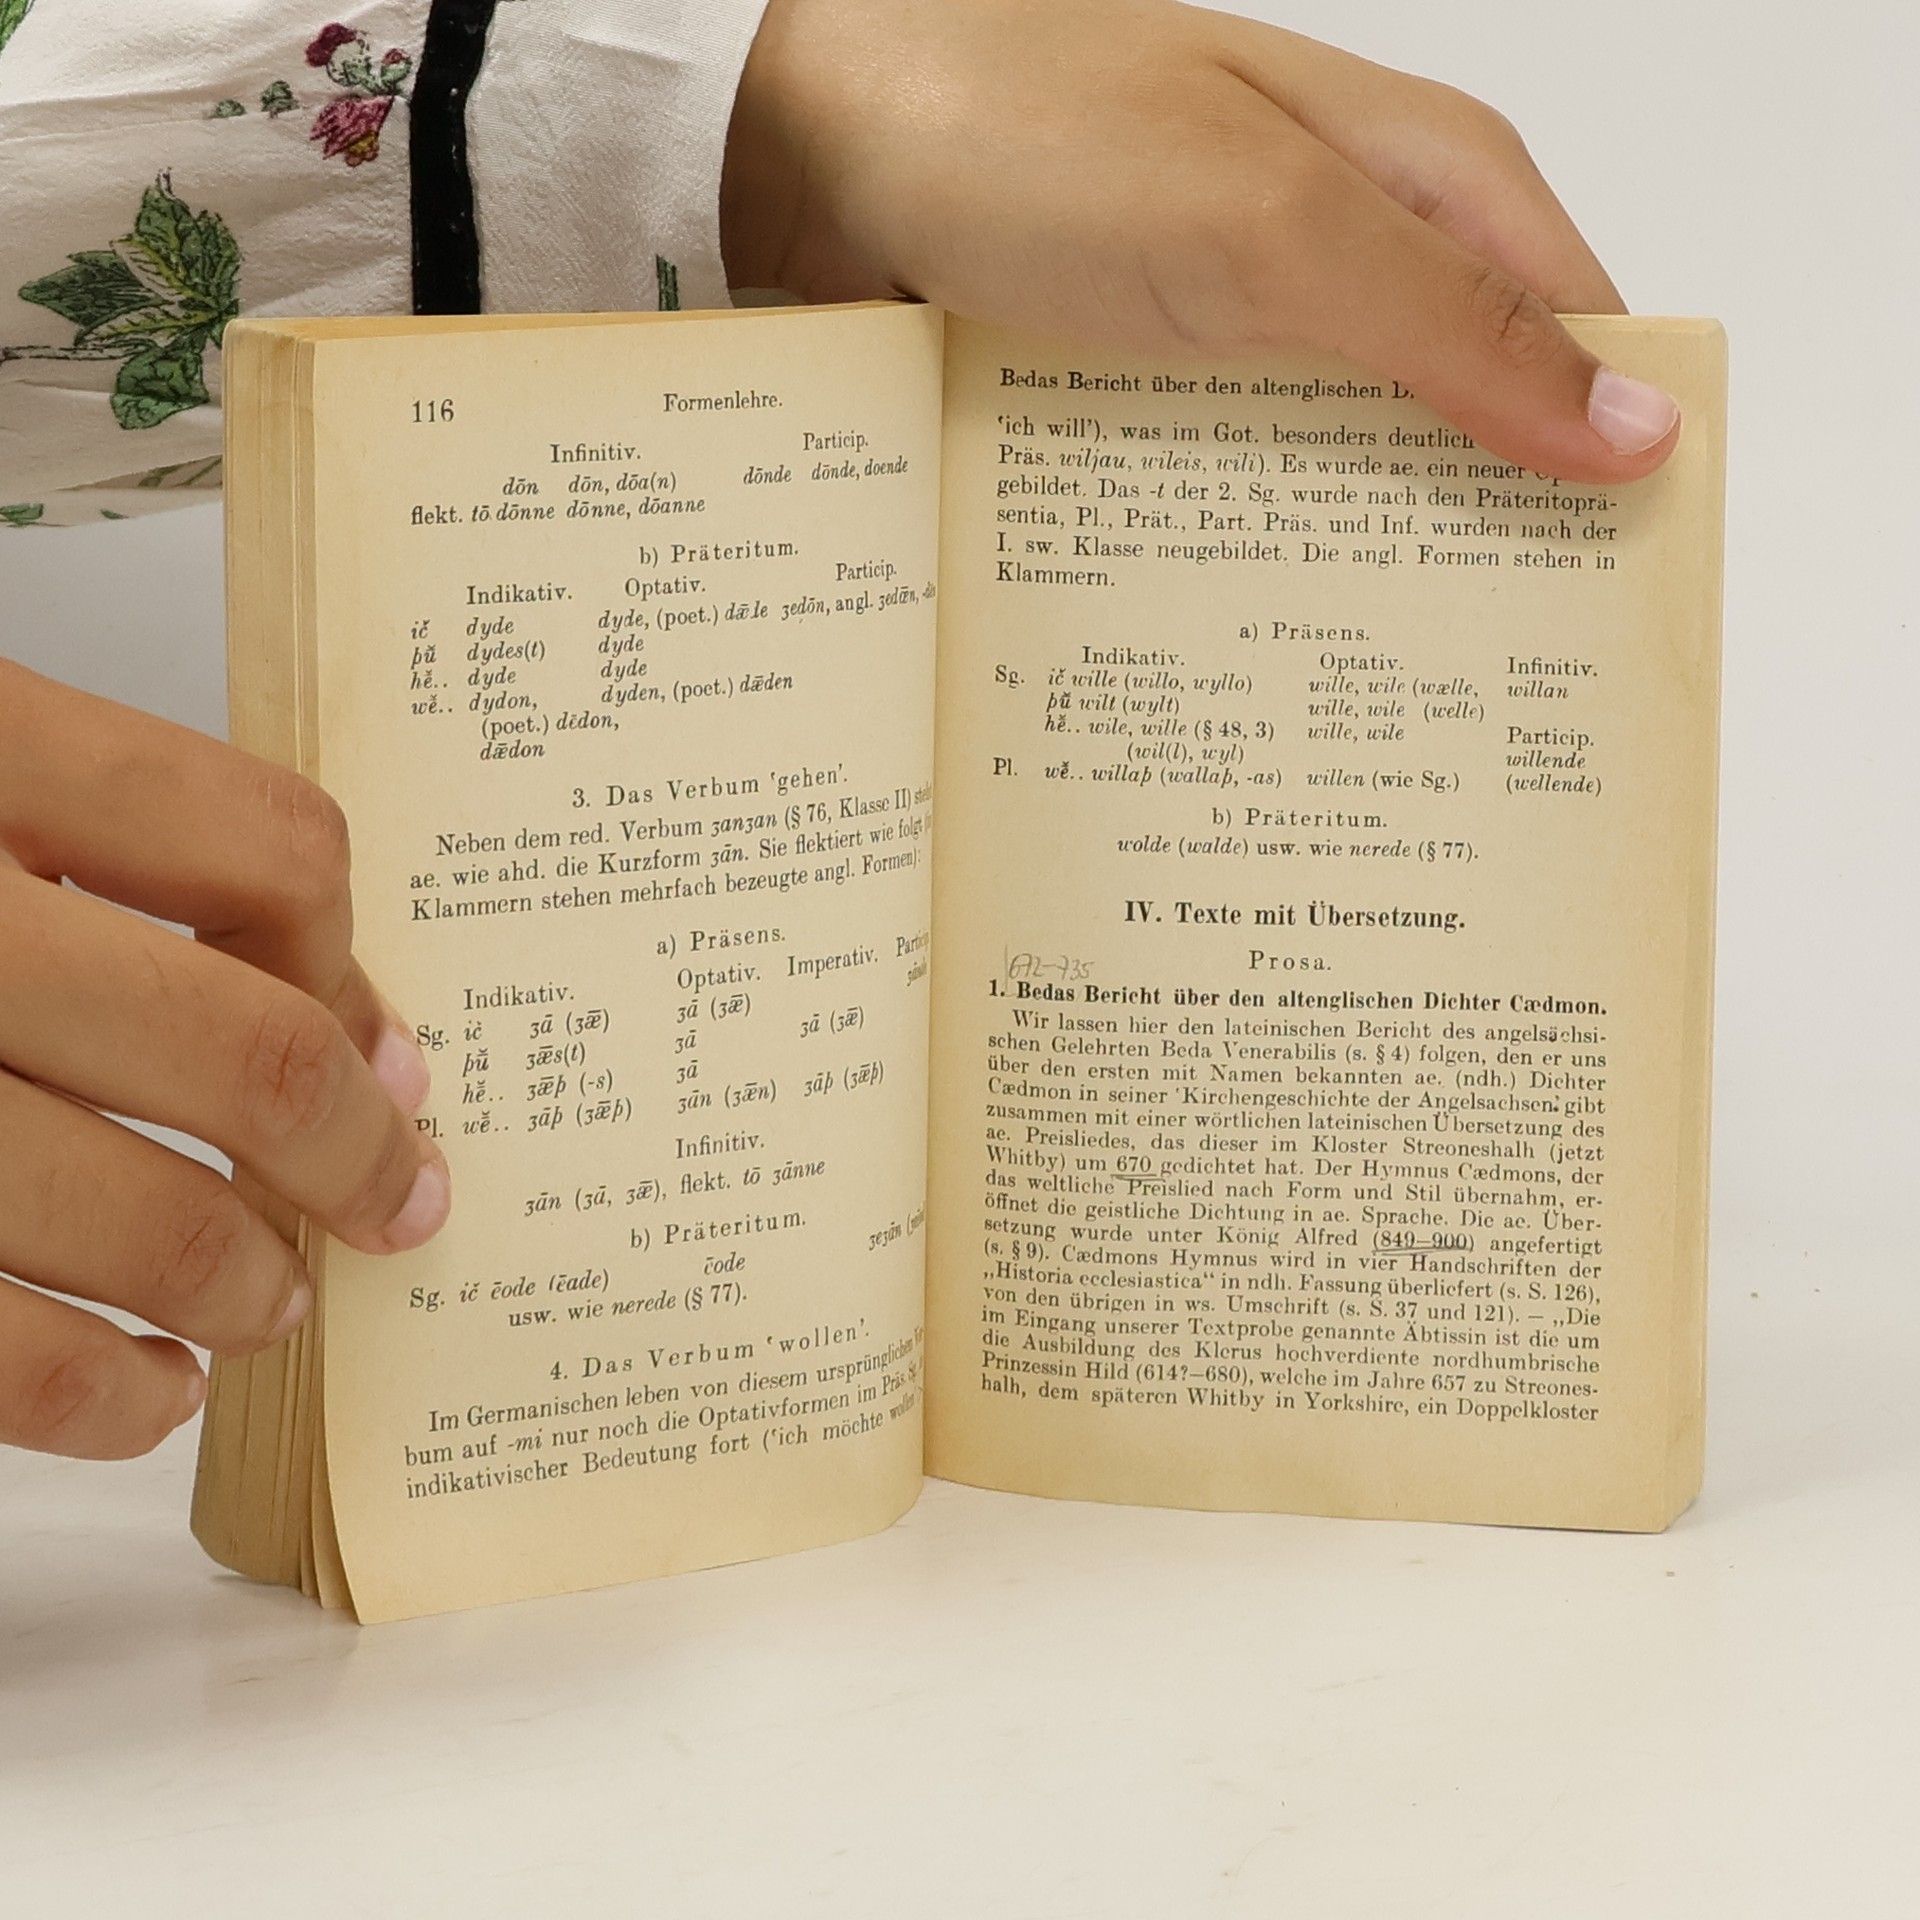 116 Formenlehre.
Infinitiv. Particip.
dōn dōn, dōa(n) dōnde dōnde, doende
flekt. tō dōnne dōnne, dōanne
b) Präteritum.
Indikativ. Optativ. Particip.
ič̆ dyde dyde, (poet.) dǣle ʒedōn, angl. ʒedœ̄n,
þū̆ dydes(t) dyde
hē̆.. dyde dyde
wē̆.. dydon, dyden, (poet.) dǣden
(poet.) dēdon,
dǣdon
3. Das Verbum ‘gehen’.
Neben dem red. Verbum ʒanʒan (§ 76, Klasse II)
ae. wie ahd. die Kurzform ʒān. Sie flektiert wie folgt
Klammern stehen mehrfach bezeugte angl. Formen):
a) Präsens.
Indikativ. Optativ. Imperativ.
Sg. ič ʒā (ʒǣ) ʒā (ʒǣ)
þū̆ ʒǣs(t) ʒā ʒā (ʒǣ)
hē̆.. ʒǣþ (-s) ʒā
Pl. wē̆.. ʒāþ (ʒǣþ) ʒān (ʒǣn) ʒāþ (ʒǣþ)
Infinitiv.
ʒān (ʒā, ʒǣ), flekt. tō ʒānne
b) Präteritum.
Sg. ič̆ ēode (ēade) ēode ʒeʒān
usw. wie nerede (§ 77).
4. Das Verbum ‘wollen’.
Im Germanischen leben von diesem ursprünglichen
bum auf -mi nur noch die Optativformen im Präs. Sg.
indikativischer Bedeutung fort (‘ich möchte wollen’
Bedas Bericht über den altenglischen
‘ich will’), was im Got. besonders deutlich
Präs. wiljau, wileis, wili). Es wurde ae. ein neuer
gebildet. Das -t der 2. Sg. wurde nach den Präteritoprä-
sentia, Pl., Prät., Part. Präs. und Inf. wurden nach der
I. sw. Klasse neugebildet. Die angl. Formen stehen in
Klammern.
a) Präsens.
Indikativ. Optativ. Infinitiv.
Sg. ič̆ wille (willo, wyllo) wille, wile (wælle, willan
þū̆ wilt (wylt) wille, wile (welle)
hē̆.. wile, wille (§ 48, 3) wille, wile Particip.
(wil(l), wyl) willende
Pl. wē̆.. willaþ (wallaþ, -as) willen (wie Sg.) (wellende)
b) Präteritum.
wolde (walde) usw. wie nerede (§ 77).
IV. Texte mit Übersetzung.
Prosa.
672–735
1. Bedas Bericht über den altenglischen Dichter Cædmon.
Wir lassen hier den lateinischen Bericht des angelsächsi-
schen Gelehrten Beda Venerabilis (s. § 4) folgen, den er uns
über den ersten mit Namen bekannten ae. (ndh.) Dichter
Cædmon in seiner ‘Kirchengeschichte der Angelsachsen’ gibt
zusammen mit einer wörtlichen lateinischen Übersetzung des
ae. Preisliedes, das dieser im Kloster Streoneshalh (jetzt
Whitby) um 670 gedichtet hat. Der Hymnus Cædmons, der
das weltliche Preislied nach Form und Stil übernahm, er-
öffnet die geistliche Dichtung in ae. Sprache. Die ae. Über-
setzung wurde unter König Alfred (849–900) angefertigt
(s. § 9). Cædmons Hymnus wird in vier Handschriften der
„Historia ecclesiastica“ in ndh. Fassung überliefert (s. S. 126),
von den übrigen in ws. Umschrift (s. S. 37 und 121). — „Die
im Eingang unserer Textprobe genannte Äbtissin ist die um
die Ausbildung des Klerus hochverdiente nordhumbrische
Prinzessin Hild (614?–680), welche im Jahre 657 zu Streones-
halh, dem späteren Whitby in Yorkshire, ein Doppelkloster